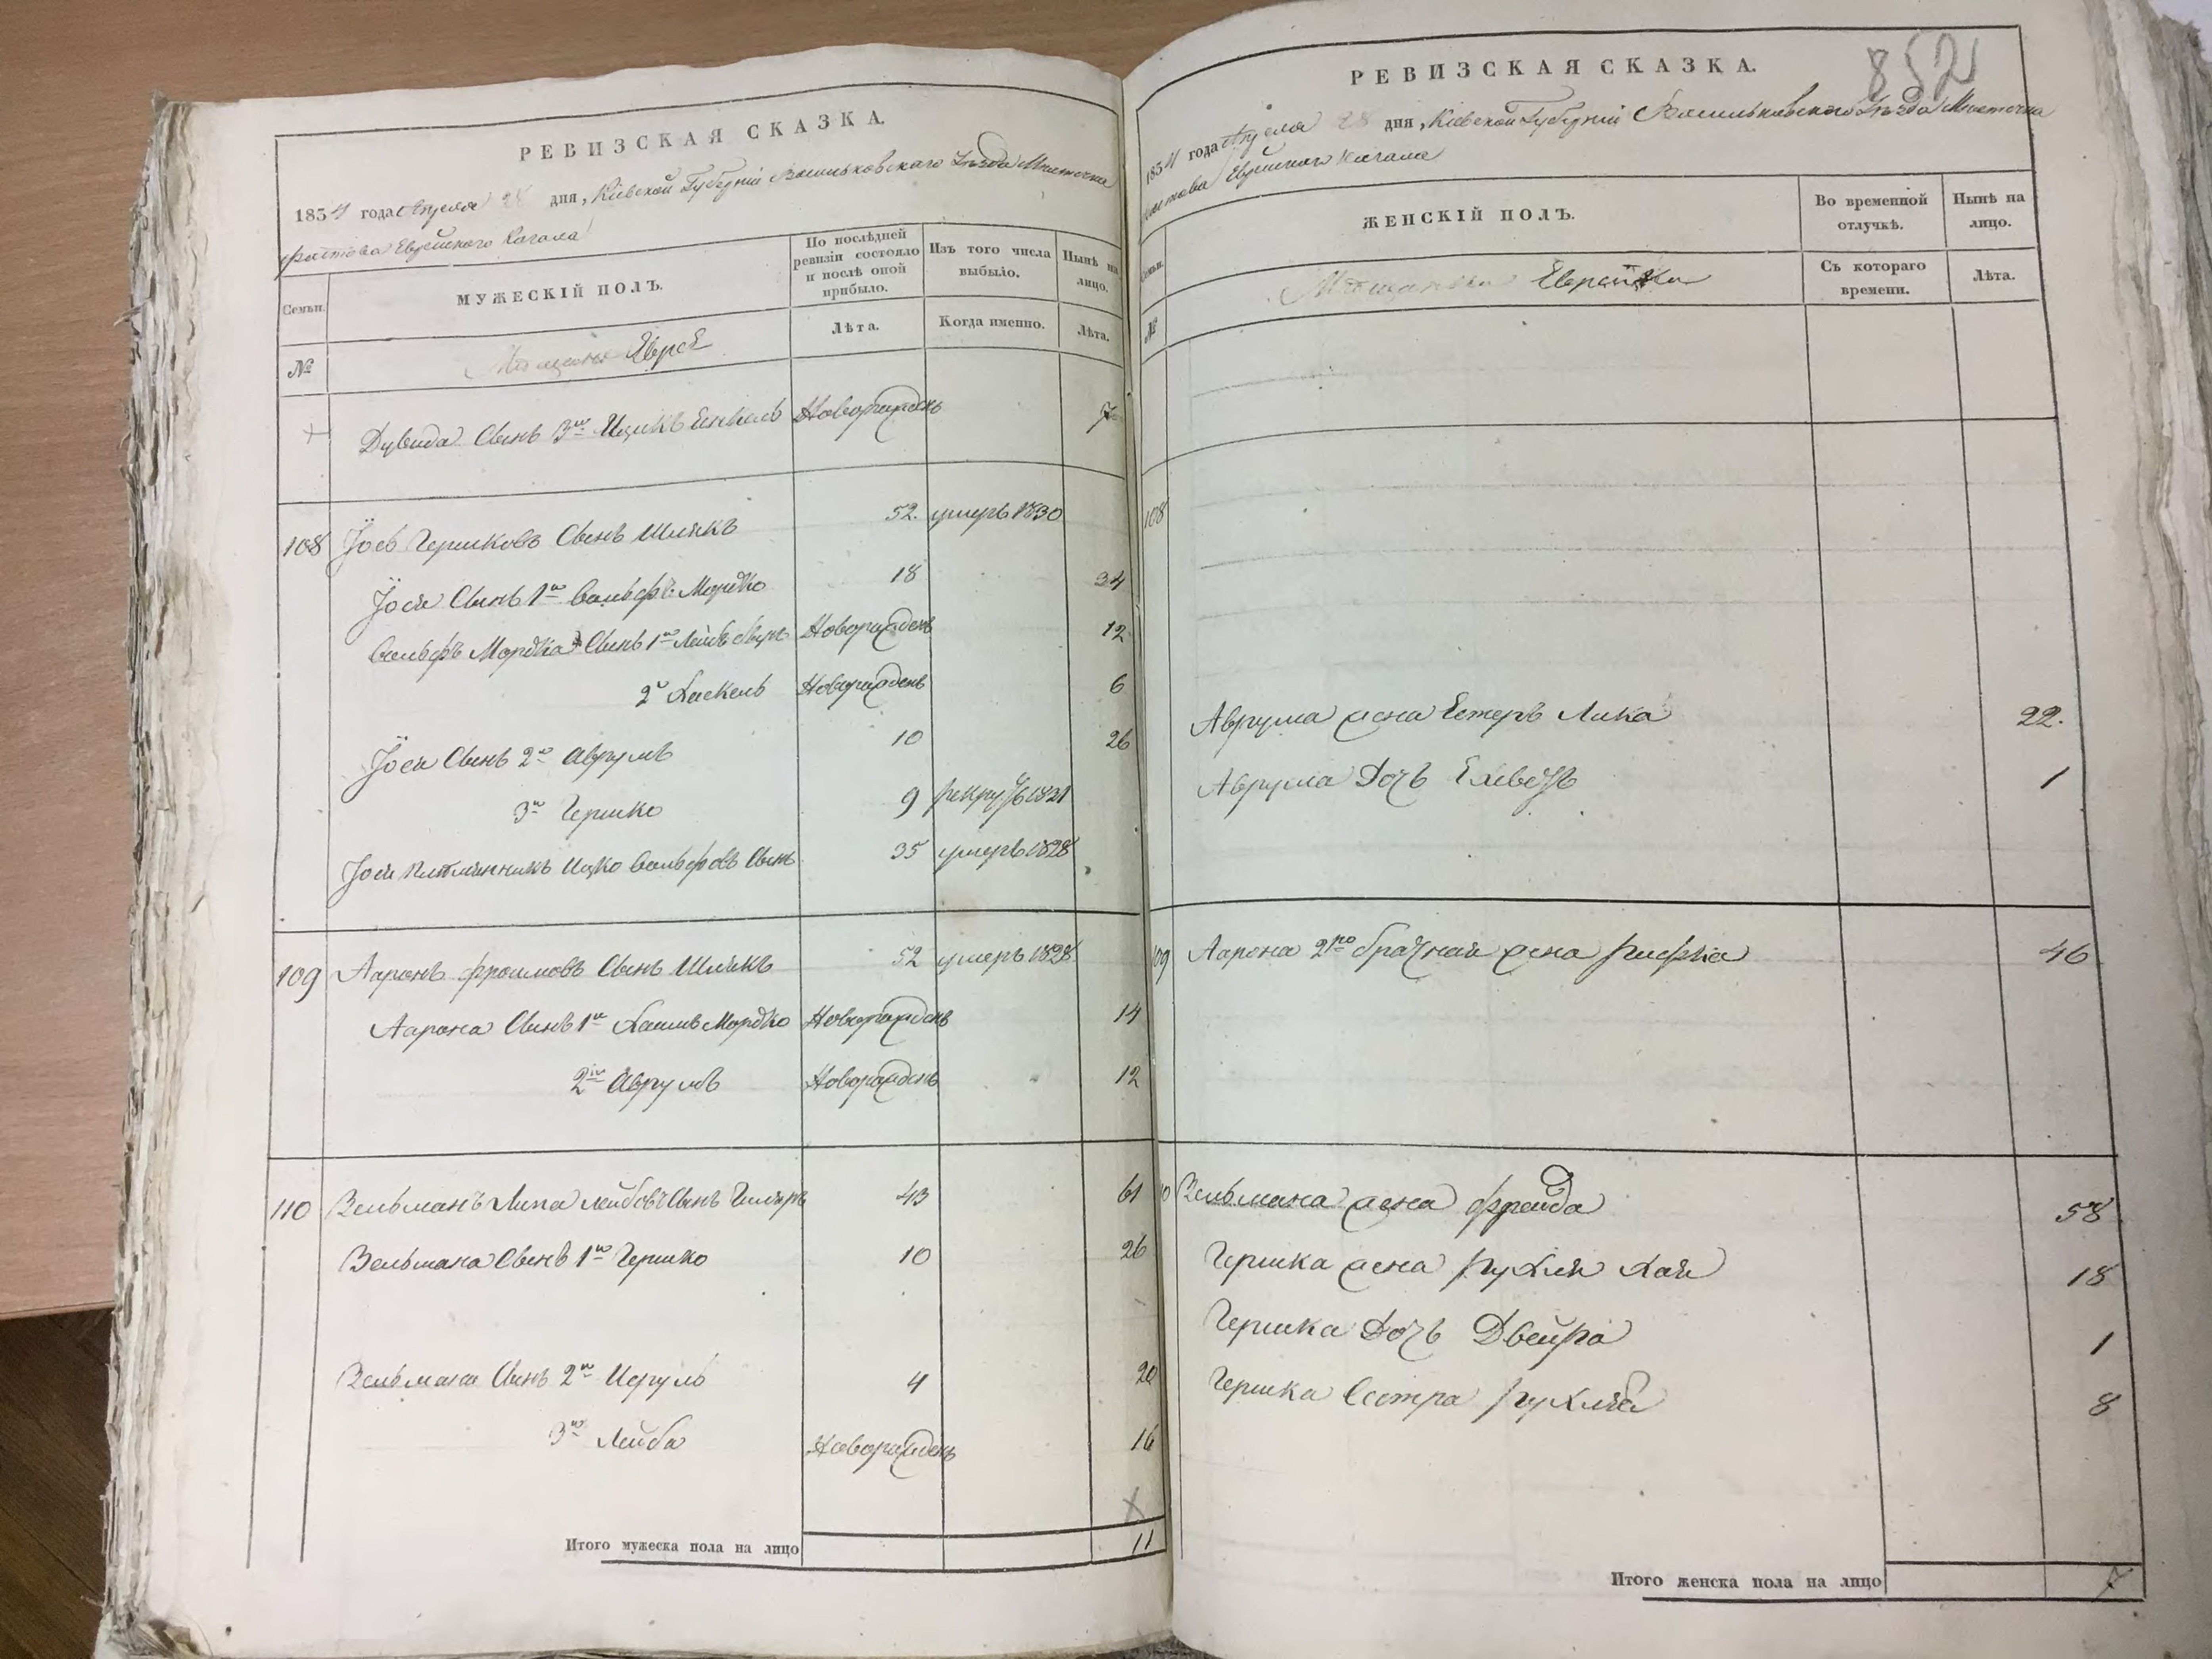 РЕВИЗСКАЯ СКАЗКА.
1834 года Апреля 28 дня, Кіевской Губерніи Васильковскаго Уѣзда Мѣстечка
Фастова Еврейскаго Кагала
Семьи.
МУЖЕСКІЙ ПОЛЪ.
По послѣдней ревизіи состояло и послѣ оной прибыло.
Изъ того числа выбыло.
Нынѣ на лицо.
№
Мѣщане Евреи
Лѣта.
Когда именно.
Лѣта.
Дувида Сынъ 3й Ицикъ Енкель Новорожденъ 7
108 Іось Гершковъ Сынъ Шпякъ 52. умеръ 1830
Іося Сынъ 1й Вольфъ Мордко 18 34
Вольфъ Мордка Сынъ 1й Лейбъ Новорожденъ 12
2й Хаскель Новорожденъ 6
Іося Сынъ 2й Аврумъ 10 26
3й Гершко 9 рекрут 1831
Іося племянникъ Ицко Вольфовъ Сынъ 35 умеръ 1828
109 Ааронъ Фроимовъ Сынъ Шпякъ 52 умеръ 1828
Аарона Сынъ 1й Хаимъ Мордко Новорожденъ 14
2й Аврумъ Новорожденъ 12
110 Зельманъ Липа Лейбовъ Сынъ 43 61
Зельмана Сынъ 1й Гершко 10 26
Зельмана Сынъ 2й Исруль 4 20
3й Лейба Новорожденъ 16
Итого мужеска пола на лицо 11
852
РЕВИЗСКАЯ СКАЗКА.
1834 года Апреля 28 дня, Кіевской Губерніи Васильковскаго Уѣзда Мѣстечка
Фастова Еврейскаго Кагала
Семьи.
ЖЕНСКІЙ ПОЛЪ.
Во временной отлучкѣ.
Нынѣ на лицо.
№
Мѣщанки Еврейки
Съ котораго времени.
Лѣта.
108
Аврума жена Естеръ Лика 22.
Аврума Дочь 1
109 Аарона 2но брачная жена Рифка 46
Зельмана жена Фрейда 58
Гершка жена Рухля Хая 18
Гершка Дочь Двейра 1
Гершка Сестра Рухля 8
Итого женска пола на лицо 7